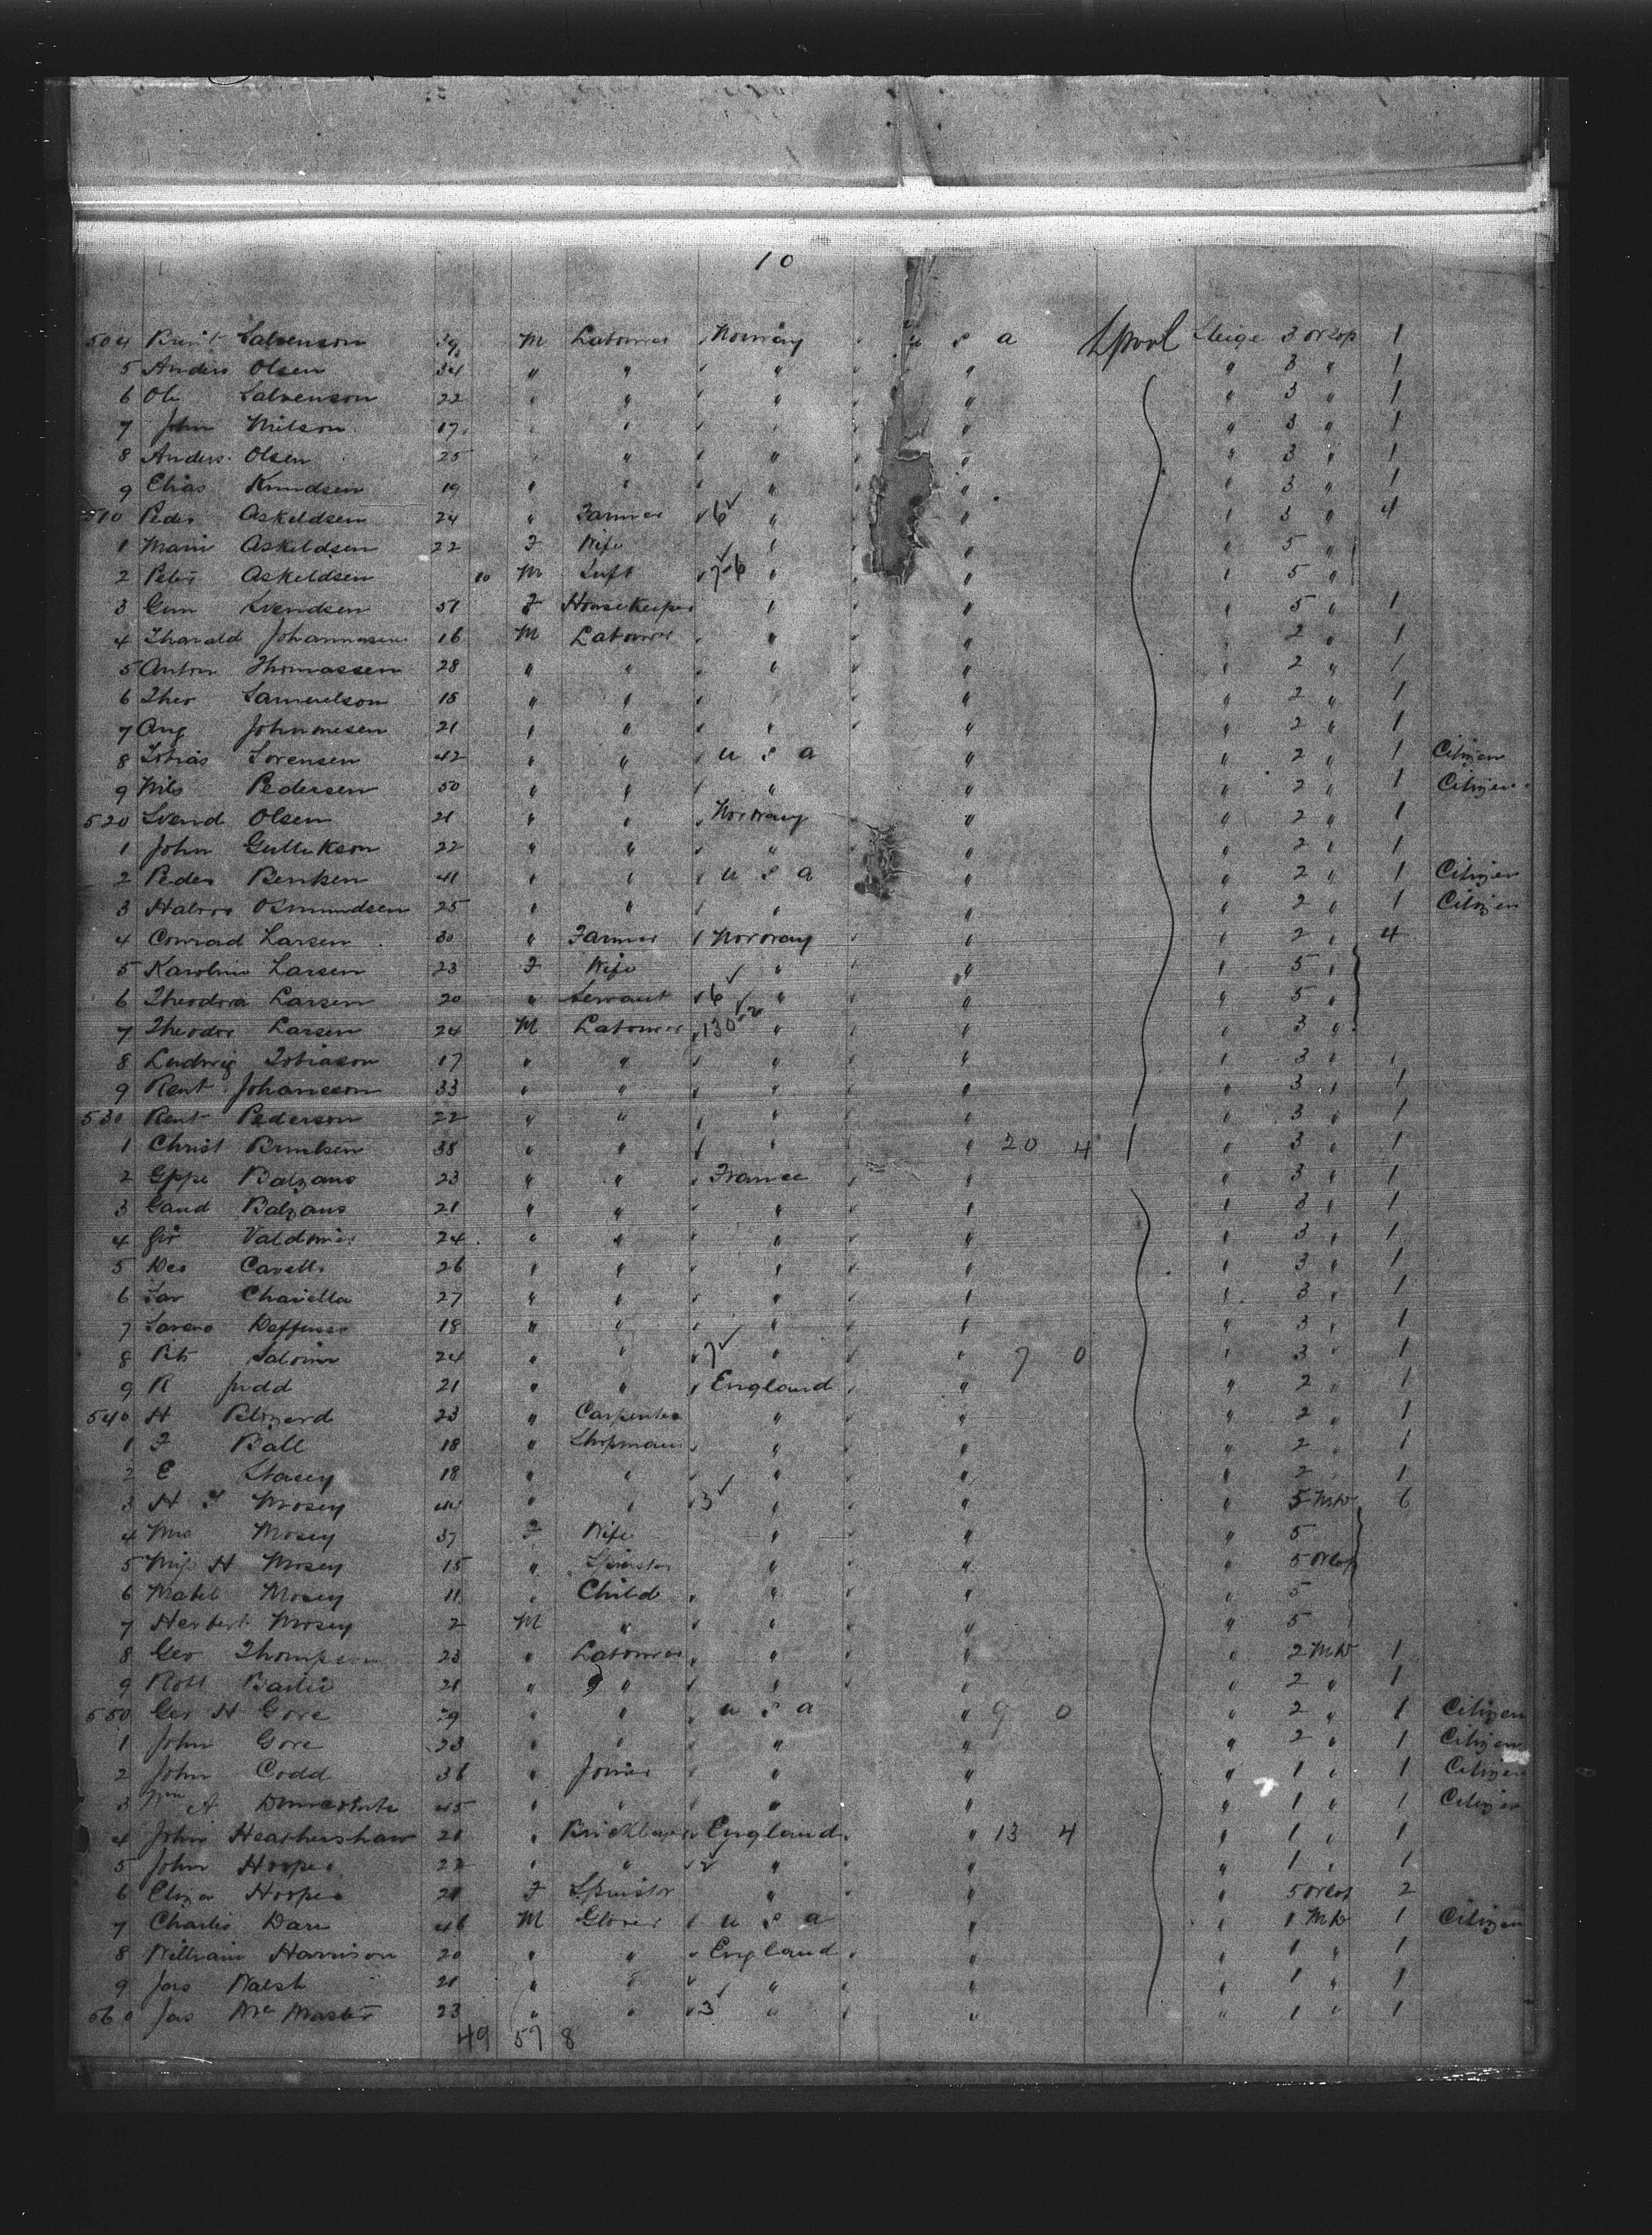 10
504 Salvenson 39 M Labourer Norway u s a Lpool Stege 3 orlop 1
5 Anders Olsen 34 " " " " " 3 " 1
6 Ole Salvenson 22 " " " " " 3 " 1
7 John Nilson 17 " " " " " 3 " 1
8 Anders Olsen 25 " " " " " 3 " 1
9 Elias Knudsen 19 " " " " " 3 " 1
510 Peder Askeldsen 24 " Farmer 6 " " " 3 " 4
1 Marie Askeldsen 22 F Wife " " " 5 "
2 Peter Askeldsen 10 M Inft 7-6 " " " 5 "
3 Gun Svendsen 51 F Housekeeper " " " 5 " 1
4 Tharald Johannesen 16 M Labourer " " " 2 " 1
5 Anton Thomassen 28 " " " " " 2 " 1
6 Theo Samuelson 18 " " " " " 2 " 1
7 Aug Johnnesen 21 " " " " " 2 " 1
8 Tobias Sorensen 42 " " u s a " " 2 " 1 Citizen
9 Nils Pedersen 50 " " " " " 2 " 1 Citizen
520 Svend Olsen 21 " " Norway " " 2 " 1
1 John Gullikson 22 " " " " " 2 " 1
2 Peder Benksen 41 " " u s a " " 2 " 1 Citizen
3 Halvor Osmundsen 25 " " " " " 2 " 1 Citizen
4 Conrad Larsen 30 " Farmer Norway " " 2 " 4
5 Karoline Larsen 23 F Wife " " " 5 "
6 Theodora Larsen 20 " Servant 6 " " " 5 "
7 Theodor Larsen 24 M Labourer 130 " " " 3 "
8 Ludwig Tobiason 17 " " " " " 3 "
9 Bent Johanson 33 " " " " " 3 " 1
530 Bent Pederson 22 " " " " " 3 " 1
1 Christ 38 " " " " 20 4 " 3 " 1
2 Gppe Balzano 23 " " France " " 3 " 1
3 Gaud Balzano 21 " " " " " 3 " 1
4 24 " " " " " 3 " 1
5 Cavelli 26 " " " " " 3 " 1
6 Chanella 27 " " " " " 3 " 1
7 18 " " " " " 3 " 1
8 24 " " 7 " " 7 0 " 3 " 1
9 R Judd 21 " " England " " 2 " 1
540 H Blizard 23 " Carpenter " " " 2 " 1
1 F Ball 18 " Shopman " " " 2 " 1
2 E Stacey 18 " " " " " 2 " 1
3 H Mosey 40 " " 3 " " " 5 Mdk 6
4 Mrs Mosey 37 F Wife " " " 5
5 Miss H Mosey 15 " Spinster " " " 5 orlop
6 Mabel Mosey 11 " Child " " " 5
7 Herbert Mosey 2 M " " " " 5
8 Geo Thompson 23 " Labourer " " " 2 Mdk 1
9 Robt Bailie 21 " " " " " 2 " 1
550 Geo H Gore 29 " " u s a " 9 0 " 2 " 1 Citizen
1 John Gore 23 " " " " " 2 " 1 Citizen
2 John Codd 36 " Joiner " " " 1 " 1 Citizen
3 Wm A 45 " " " " " 1 " 1 Citizen
4 John Heathershaw 21 " Bricklayer England " 13 4 " 1 " 1
5 John Hooper 22 " " 2 " " " 1 " 1
6 Eliza Hooper 21 F Spinster " " " 5 orlop 2
7 Charles Dare 46 M Glover u s a " " 1 Mdk 1 Citizen
8 William Harrison 20 " " England " " 1 " 1
9 Jas Walsh 21 " " " " " 1 " 1
560 Jas McMaster 23 " " 3 " " " 1 " 1
49 57 8